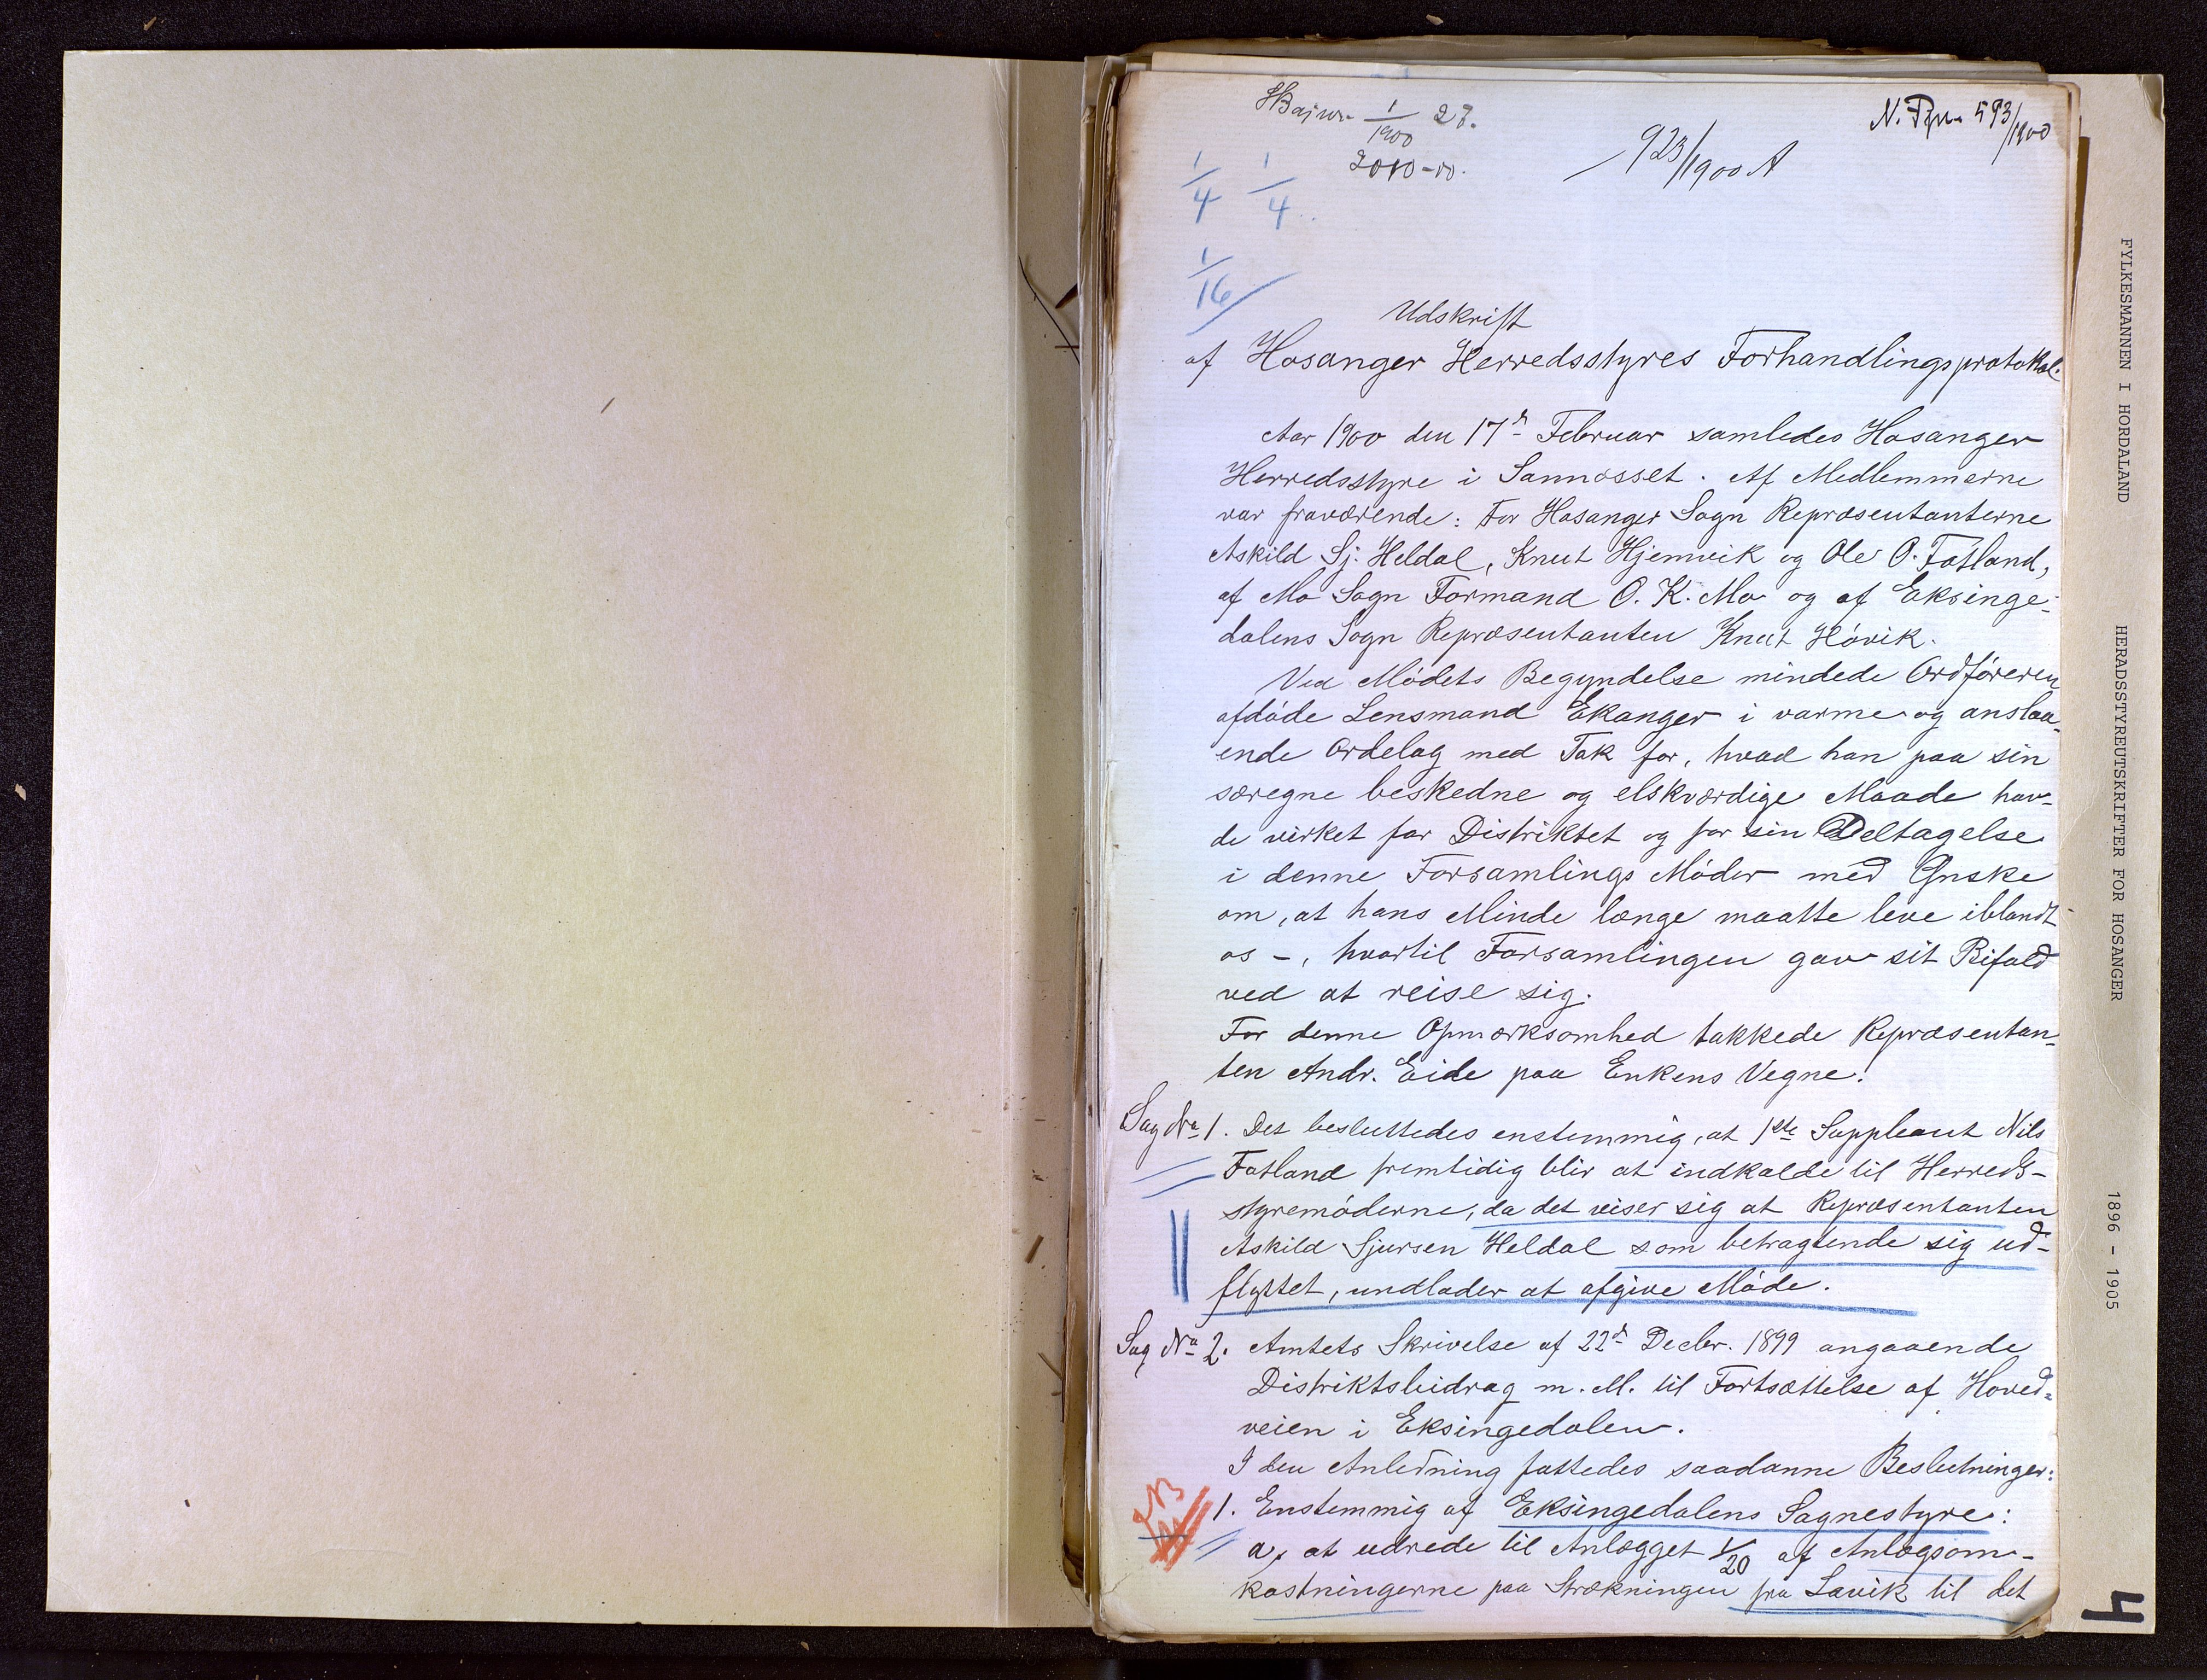 1/1900 27.
2010-00.
923/1900 A
N. 593/1900
1/4 1/4
1/16
Udskrift
af Hosanger Herredsstyres Forhandlingsprotokol.
Aar 1900 den 17d Februar samledes Hosanger
Herredsstyre i Sannosset. Af Medlemmerne
var fraværende: For Hosanger Sogn Repræsentanterne
Askild Sj. Heldal, Knut Hjemvik og Ole O. Fatland,
af Mo Sogn Formand O. K. Mo og af Eksinge-
dalens Sogn Repræsentanten Knut Hóvik.
Ved Módets Begyndelse mindede Ordfóreren
afdóde Lensmand Ekanger i varme og anslaa-
ende Ordelag med Tak for, hvad han paa sin
særegne beskedne og elskværdige Maade hav-
de virket for Distriktet og for sin Deltagelse
i denne Forsamlings Móder med Ønske
om, at hans Minde længe maatte leve iblandt
os -, hvortil Forsamlingen gav sit Bifald
ved at reise sig.
For denne Opmærksomhed takkede Repræsentan-
ten Andr. Eide paa Enkens Vegne.
Sag No 1. Det besluttedes enstemmig, at 1ste Suppleant Nils
Fatland fremtidig blir at indkalde til Herreds-
styremóderne, da det viser sig at Repræsentanten
Askild Sjursen Heldal som betragtende sig ud-
flyttet, undlader at afgive Móde.
Sag No 2. Amtets Skrivelse af 22d Decbr. 1899 angaaende
Distriktsbidrag m. M. til Fortsættelse af Hoved-
veien i Eksingedalen.
I den Anledning fattedes saadanne Beslutninger:
1. Enstemmig af Eksingedalens Sognestyre:
a, at udrede til Anlægget 1/20 af Anlægsom-
kostningerne paa Strækningen fra Lavik til det
FYLKESMANNEN I HORDALAND
HERADSSTYREUTSKRIFTER FOR HOSANGER
1896 - 1905
4